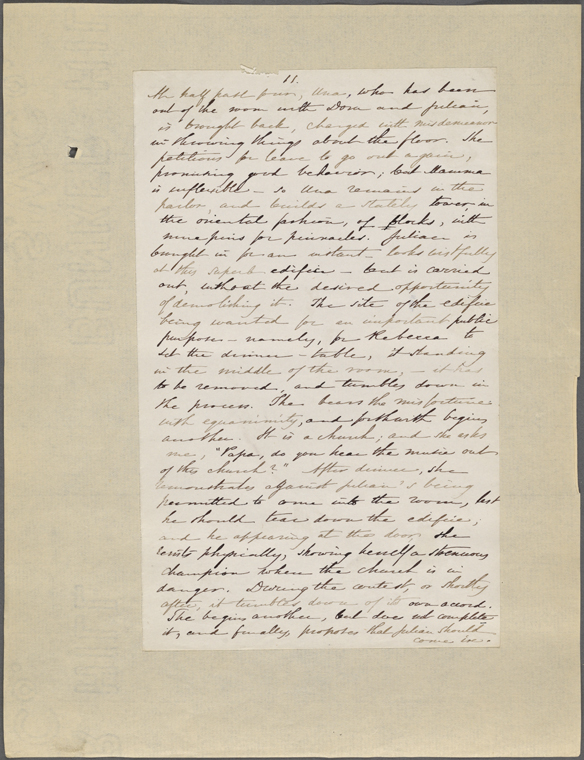 11.
At half past four, Una, who has been
out of the room with Dora and Julian,
is brought back, charged with misdemeanor
in throwing things about the floor. She
petitions for leave to go out again,
promising good behavior; but Mamma
is inflexible – so Una remains in the
parlor and builds a stately tower, in
the oriental fashion, of blocks, with
ninepins for pinnacles. Julian is
brought in for an instant – looks wistfully
at this superb edifice – but is carried
out, without the desired opportunity
of demolishing it. The site of the edifice
being wanted for an important public
purpose – namely, for Rebecca to
set the dinner-table, it standing
in the middle of the room, – it has
to be removed, and tumbles down in
the process. Una bears the misfortune
with equanimity, and forthwith begins
another. It is a church; and she asks
me, "Papa, do you hear the music out
of this church?" After dinner, she
remonstrates against Julian's being
permitted to come into the room, lest
he should tear down the edifice;
and he appearing at the door she
resists physically, showing herself a strenuous
champion when the church is in
danger. During the contest, or shortly
after, it tumbles down of its own accord.
She begins another, but does not complete
it, and finally, proposes that Julian should
come in.